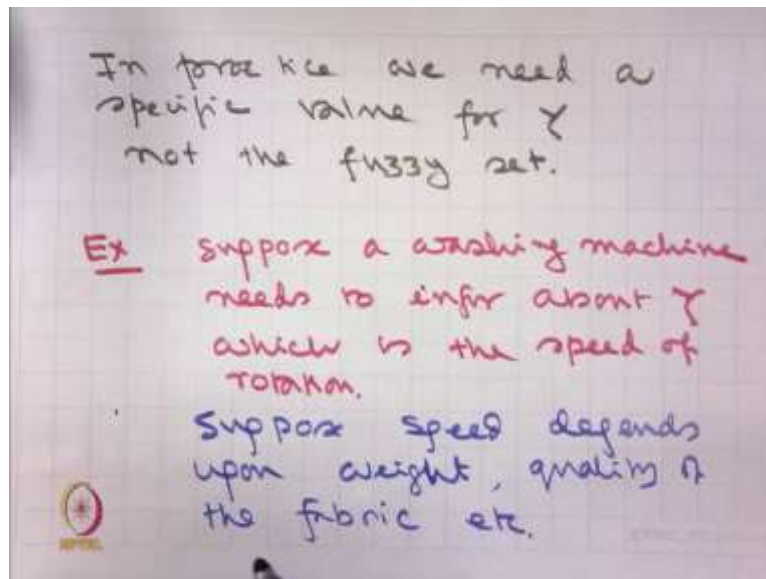 In practice we need a
specific value for Y
not the fuzzy set.
Ex Suppose a washing machine
needs to infer about Y
which is the speed of
rotation.
Suppose speed depends
upon weight, quality of
the fabric etc.
NPTEL